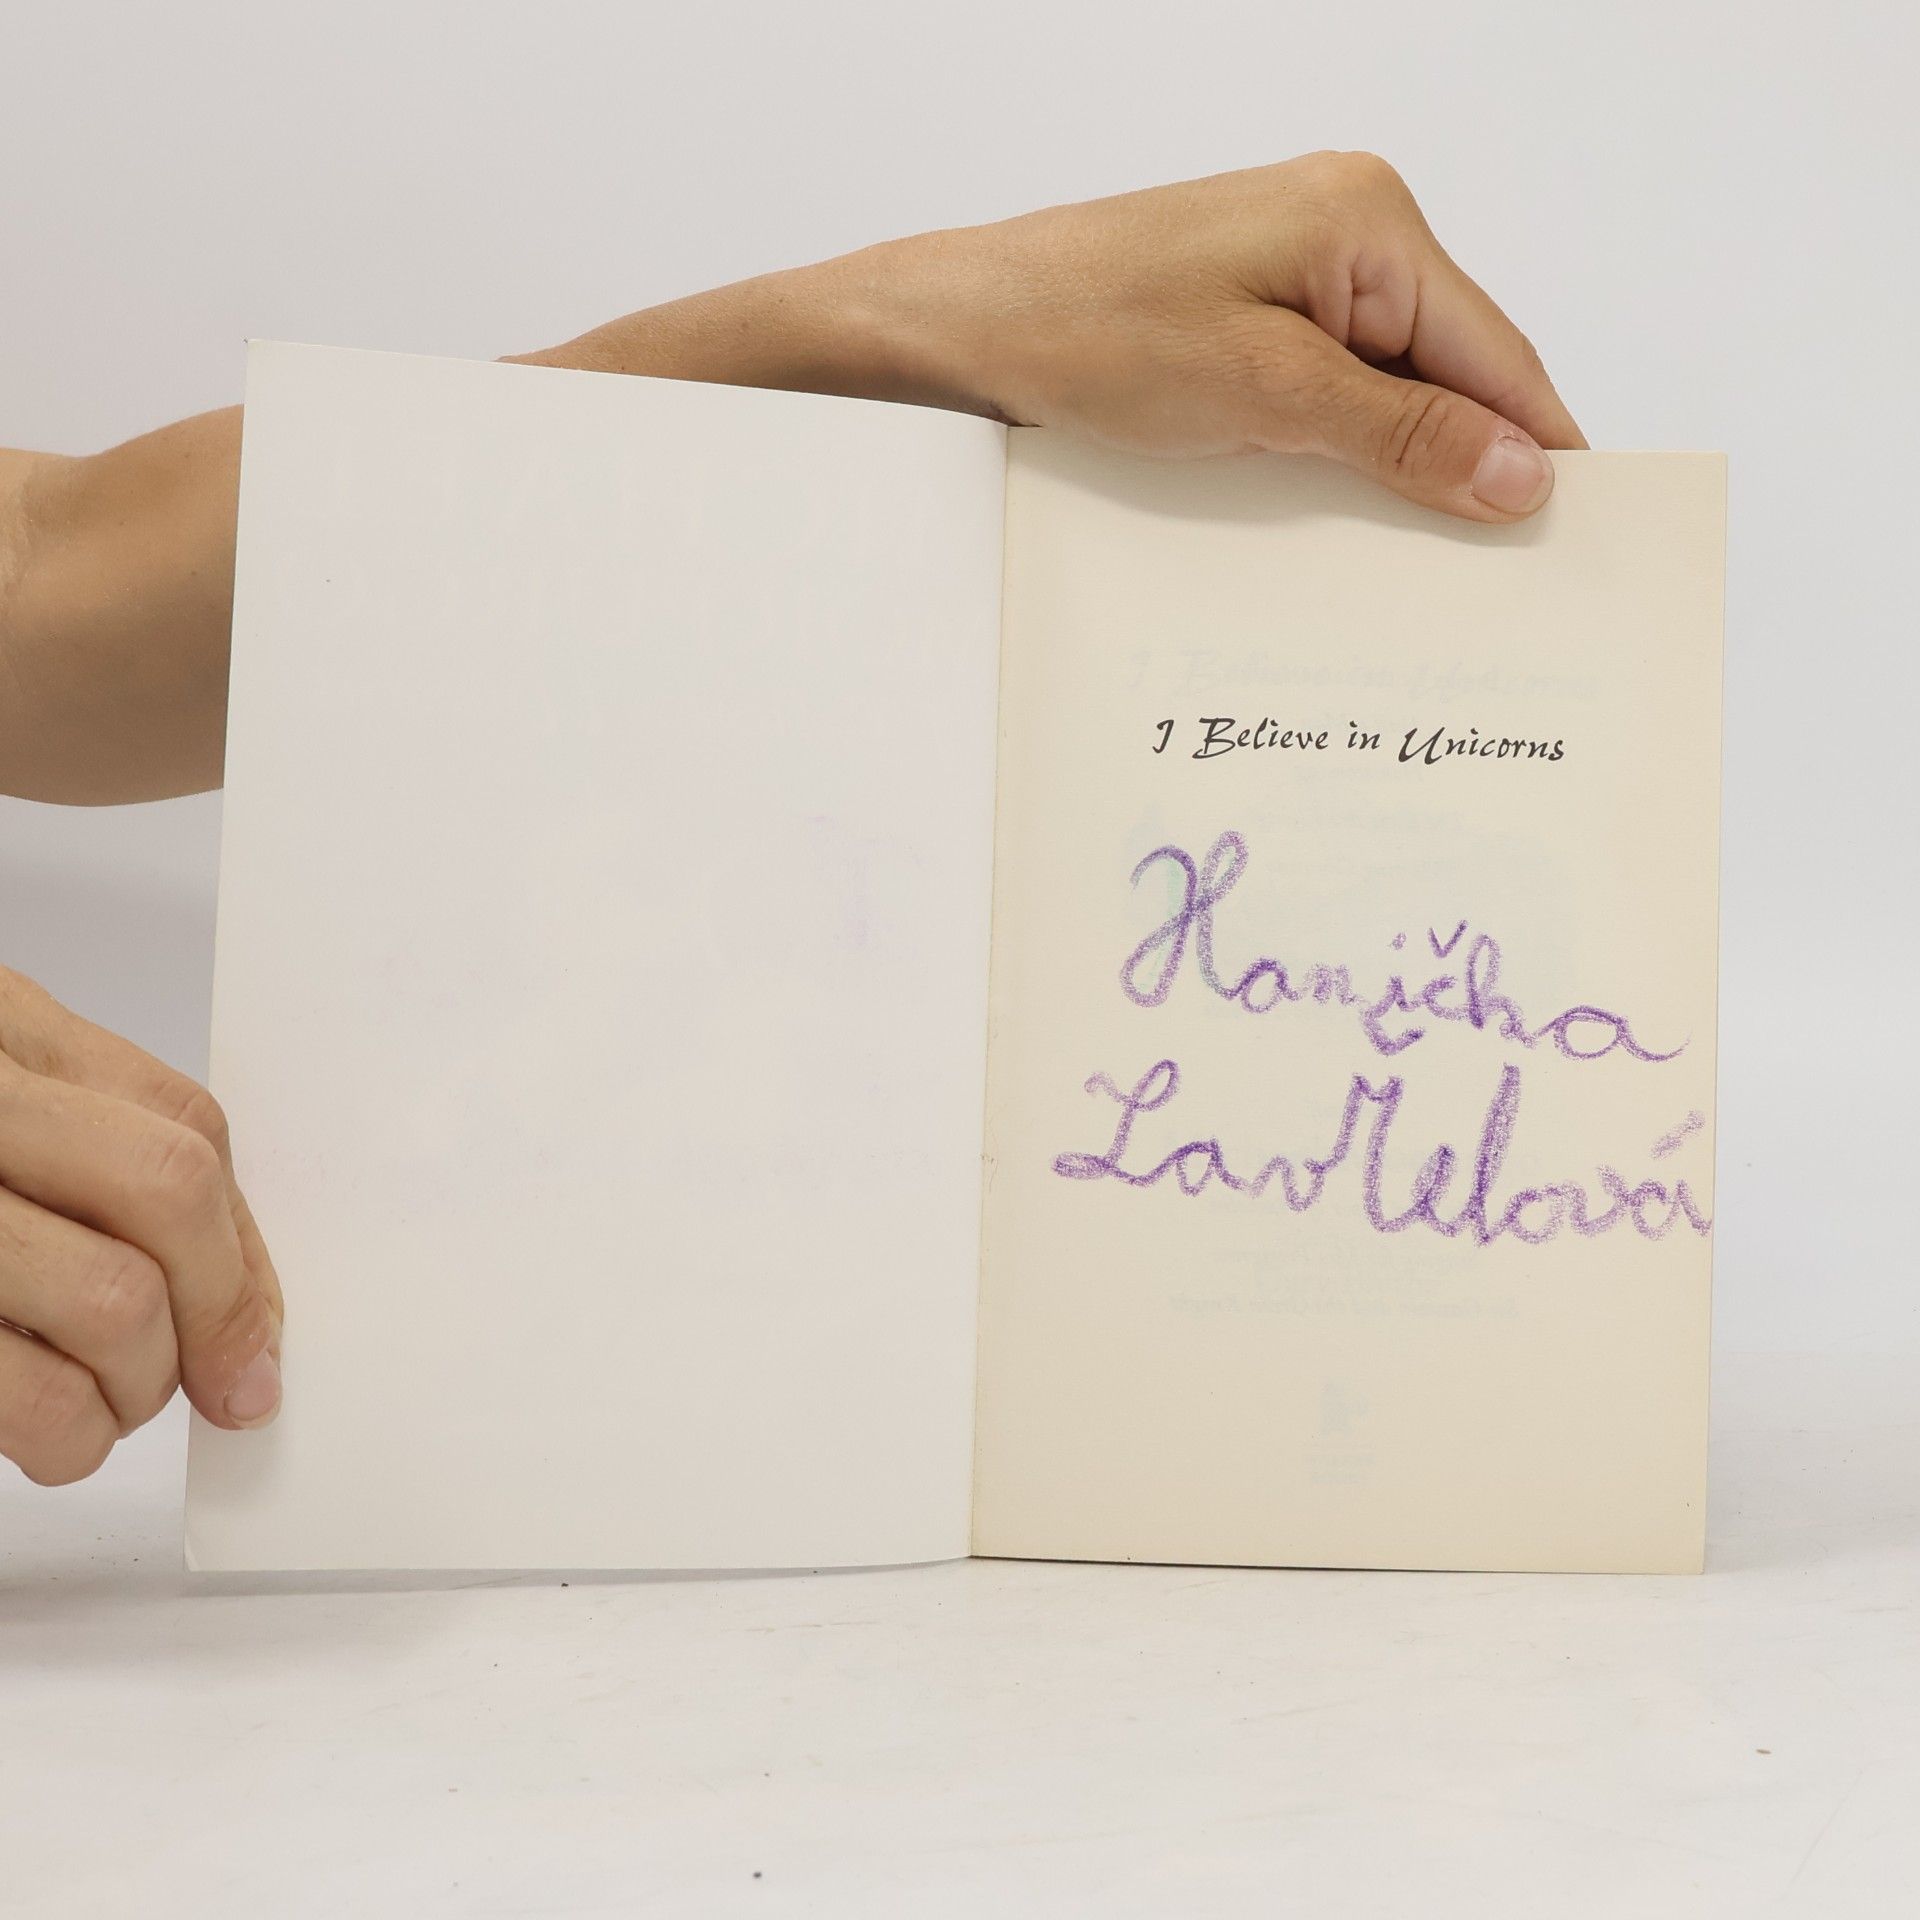 I Believe in Unicorns
Hanička
Lavrelová